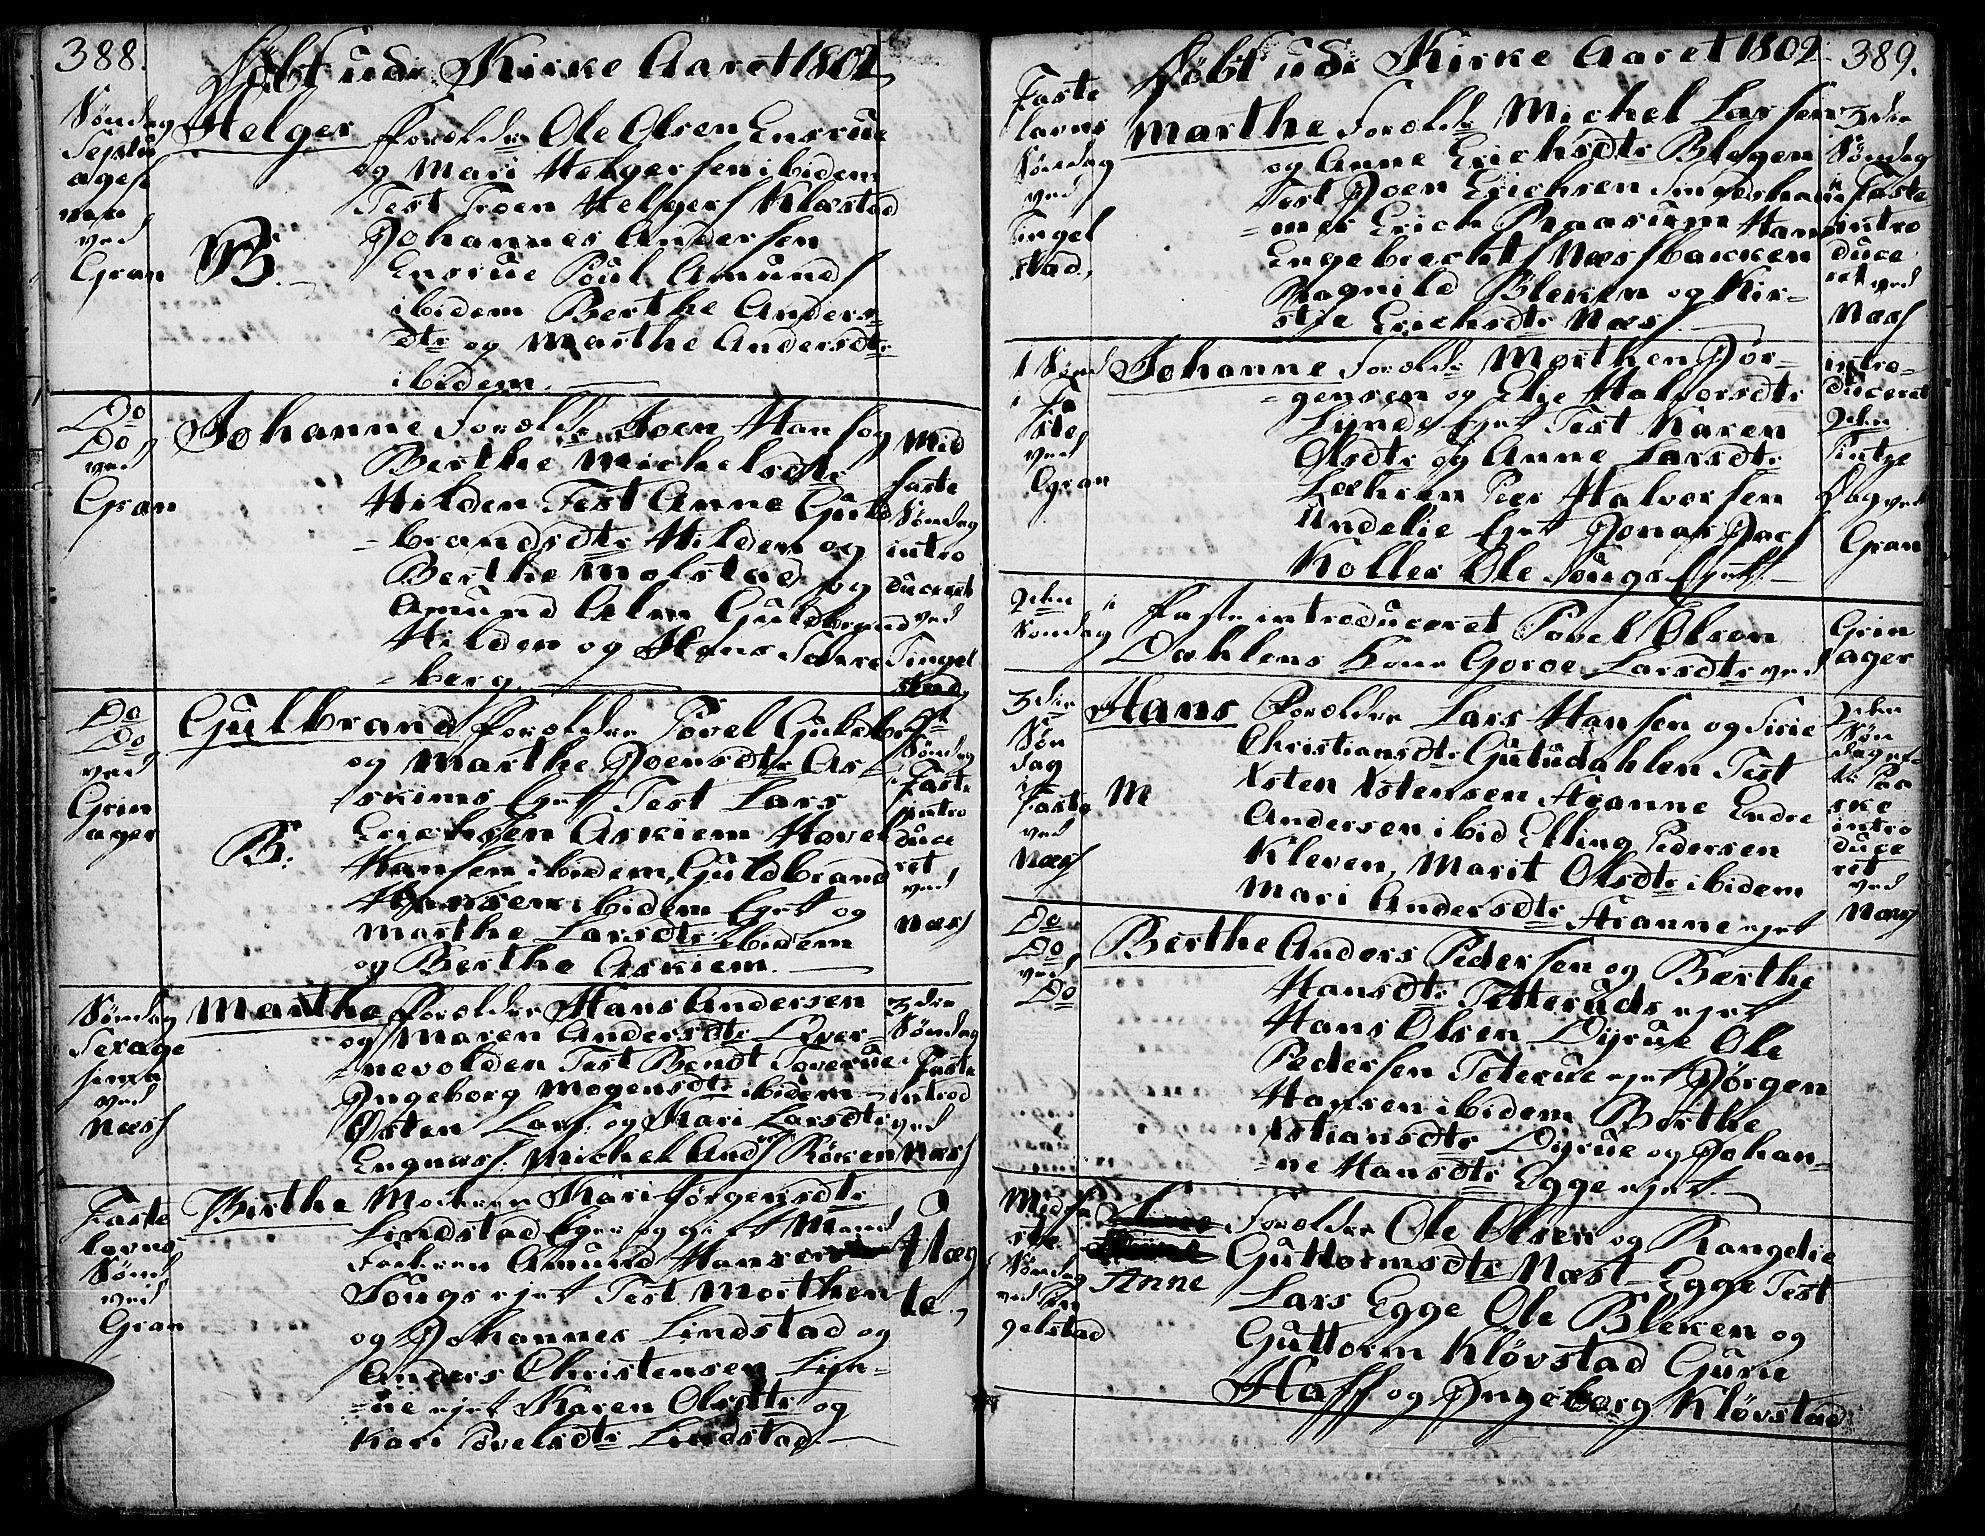 388.
Døbt udi Kirke Aaret 1802
Søndag
Septu
agesi
ma
ved
Gran
Helger Forældr Ole Olsen Ensrue
og Mari Helgersen ibidem
Test Troen Helgers Klæstad
B. Johannes Andersen
Ensrue Poul Amunds
ibidem Berthe Anders-
dtr og Marthe Andersdtr
ibidem.
Do
Do
ved
Gran
Johanne Foræld Joen Hans og
Berthe Michelsdtr
Hilden Test Anne Guld
-brandsdtr Hilden og
Berthe Molstad og
Amund Guldbrand
Hilden og Hans Sohre
-berg.
Mid
faste
Søndag
intro
duceret
ved
Tingel
stad
Do
Do
ved
Grin
ager
Gulbrand Forældre Povel Guldbr
og Marthe Joensdtr As
skims Ejet Test Lars
Erichsen Askiem Hovel
B. Hansen ibidem, Guldbrand
Hansen ibidem Ejet og
Marthe Larsdtr ibidem
og Berthe Askiem.
Søndag
i Faste
intro
duce
ret
ved
Næss
Søndag
Sexage
sima
ved
Næss
Marthe Forælder Hans Andersen
og Maren Andersdtr Qver-
-nevolden Test Bendt Toverue
Ingeborg Mogensdtr ibidem
Østen Lars og Mari Larsdtr
Engnæss. Michel Ands Røken
3die
Søndag
i Faste
introd
ved
Næss
Faste
lavns
Sønd
ved
Gran
Berthe Moderen Mari Jørgensdtr
Lindstad Ejer ugift Mand
Faderen Amund Hansen
Sougs ejet Test Morthen
og Johannes Lindstad og
Anders Christensen Lyn-
-ne ejet Karen Olsdtr og
Kari Povelsdtr Lindstad.
Uæg
te.
389.
Døbt udi Kirke Aaret 1802
Faste
lavns
Søndag
ved
Tingel
stad,
Marthe Foræld Michel Larsen
og Anne Erichsdtr Blegen
Test Joen Erichsen Ingershau
-mer Erich Raasum Hans
Engebrechts Næssbakken
Ragnild Bleken og Kir-
stie Erichsdtr Næss.
3die
Søndag
i Faste
intro
duce
ret ved
Næss
1 Sønd
i Fa
ste
ved
Gran
Johanne Foræld Morthen Jør-
-gensen og Elie Halvorsdtr
Lynde Ejet Test Karen
Olsdtr og Anne Larsdtr
Læhren Peer Halvorsen
Andelie Ejet Jonas Jac
Koller Ole Sougs Ejet.
intro-
duceret
2den
Pintze
Dag ved
Gran
2den
Søndag
i Faste introduceret Povel Olsen
Dahlens Kone Goroe Larsdtr ved
Grin
ager
3die
Søn
dag
i
Faste
ved
Næss
Hans Forældre Lars Hansen og Sirie
Christiansdtr Gutudahlen Test
M Xsten Xstensen Stranne Endre
Andersen ibid Elling Pedersen
Kleven, Marit Olsdtr ibidem
Mari Andersdtr Stranne ejet
2den
Søn
dag ef
te Paa
ske
intro
duce
ret
ved
Næss
Do
Do
ved
Do
Berthe Anders Pedersen og Berthe
Hansdtr Tetteruds ejet
Hans Olsen Dyrue Ole
Pedersen Teterue ejet Jørgen
Hansen ibidem Berthe
Xstiansdtr Dyrue og Johan-
-ne Hansdtr Egge ejet.
Midfa
ste
Søndag
ved Tin
gelstad
Anne Forælder Ole Olsen og Rangelie
Guttormsdtr Næst Egge Test
Lars Egge Ole Bleken og
Guttorm Kløvstad Gurie
Haff og Ingeborg Kløvstad